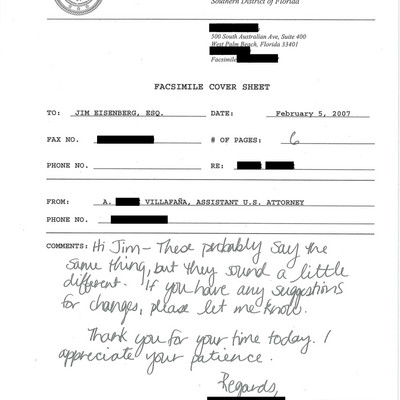 Southern District of Florida
500 South Australian Ave, Suite 400
West Palm Beach, Florida 33401
Facsimile
FACSIMILE COVER SHEET
TO: JIM EISENBERG, ESQ. DATE: February 5, 2007
FAX NO. # OF PAGES: 6
PHONE NO. RE:
FROM: A. VILLAFAÑA, ASSISTANT U.S. ATTORNEY
PHONE NO.
COMMENTS: Hi Jim – These probably say the
same thing, but they sound a little
different. If you have any suggestions
for changes, please let me know.
Thank you for your time today. I
appreciate your patience.
Regards,